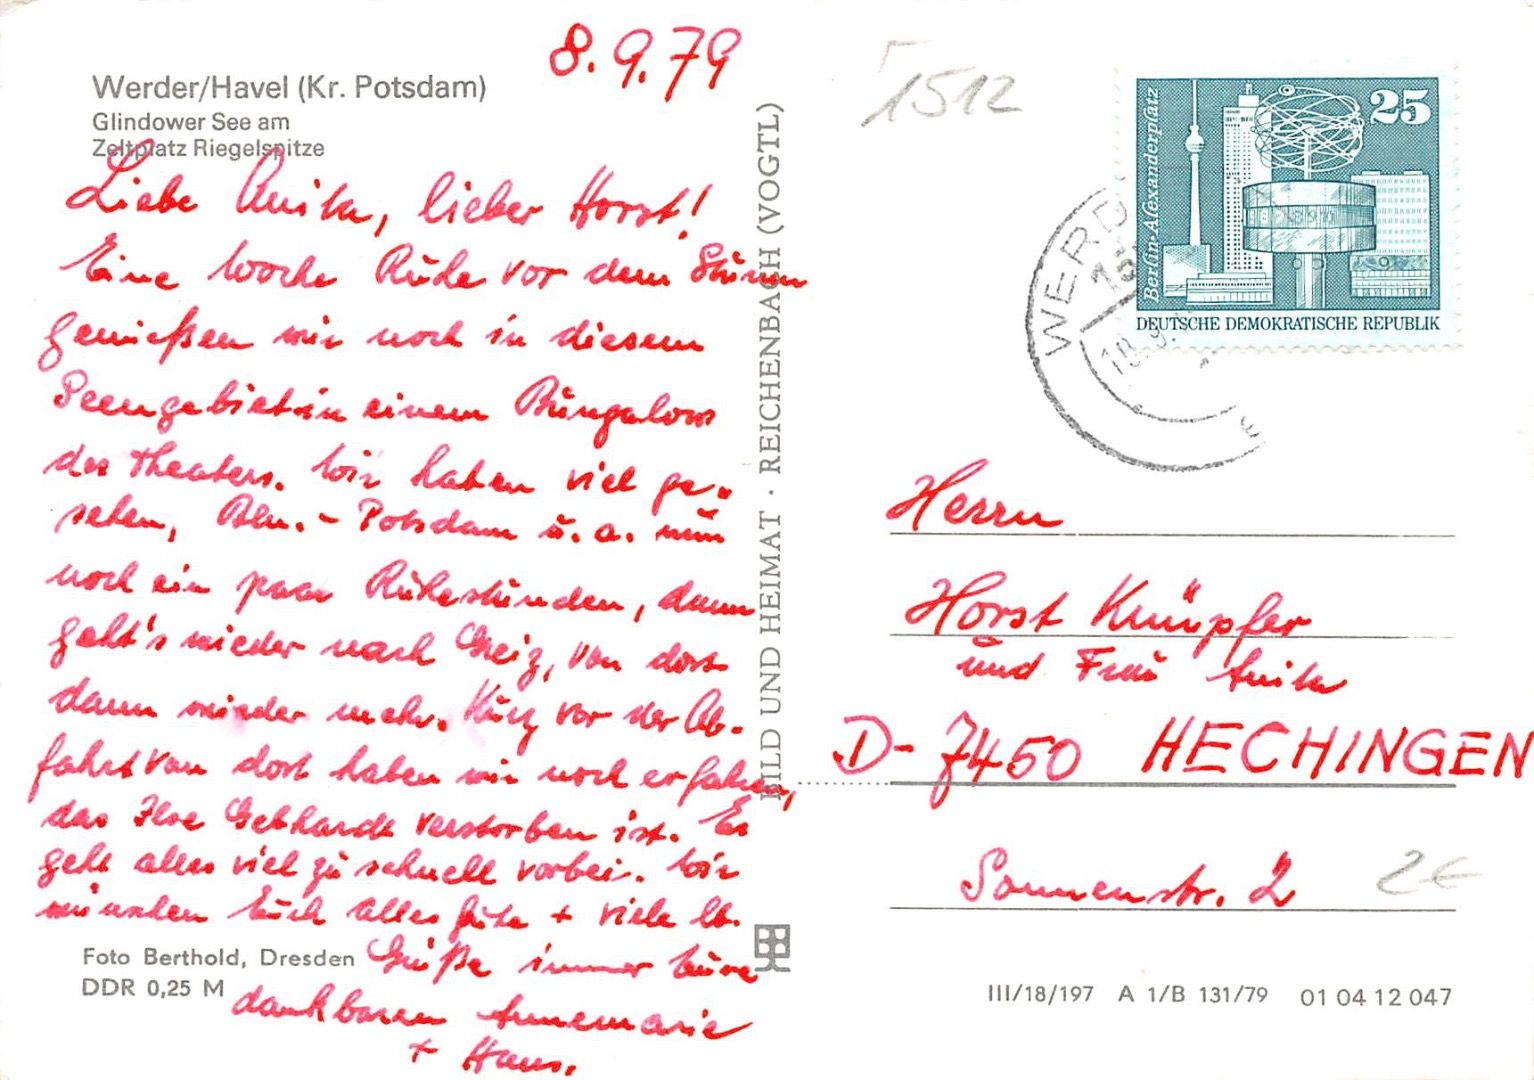 8.9.79
Werder/Havel (Kr. Potsdam)
Glindower See am
Zeltplatz Riegelspitze
Liebe Anita, lieber Horst!
Eine Woche Ruhe vor dem Sturm
genießen wir noch in diesem
Seengebiet in einem Bungalow
des Theaters. Wir haben viel ge-
sehen, Bln.- Potsdam u. a. nun
noch ein paar Ruhestunden, dann
geht's wieder nach Greiz, von dort
dann wieder mehr. Kurz vor der Ab-
fahrt von dort haben wir noch erfahren,
das Ilse Gebhardt verstorben ist. Es
geht alles viel zu schnell vorbei. Wir
wünschen Euch alles Gute + viele lb.
Grüße immer Eure
dankbaren Annemarie
+ Hans.
Foto Berthold, Dresden
DDR 0,25 M
BILD UND HEIMAT · REICHENBACH (VOGTL)
1512
25
Berlin-Alexanderplatz
DEUTSCHE DEMOKRATISCHE REPUBLIK
WERD
Herrn
Horst Knüpfer
und Frau Anita
D-7450 HECHINGEN
Sonnenstr. 2
2€
III/18/197 A 1/B 131/79 01 04 12 047